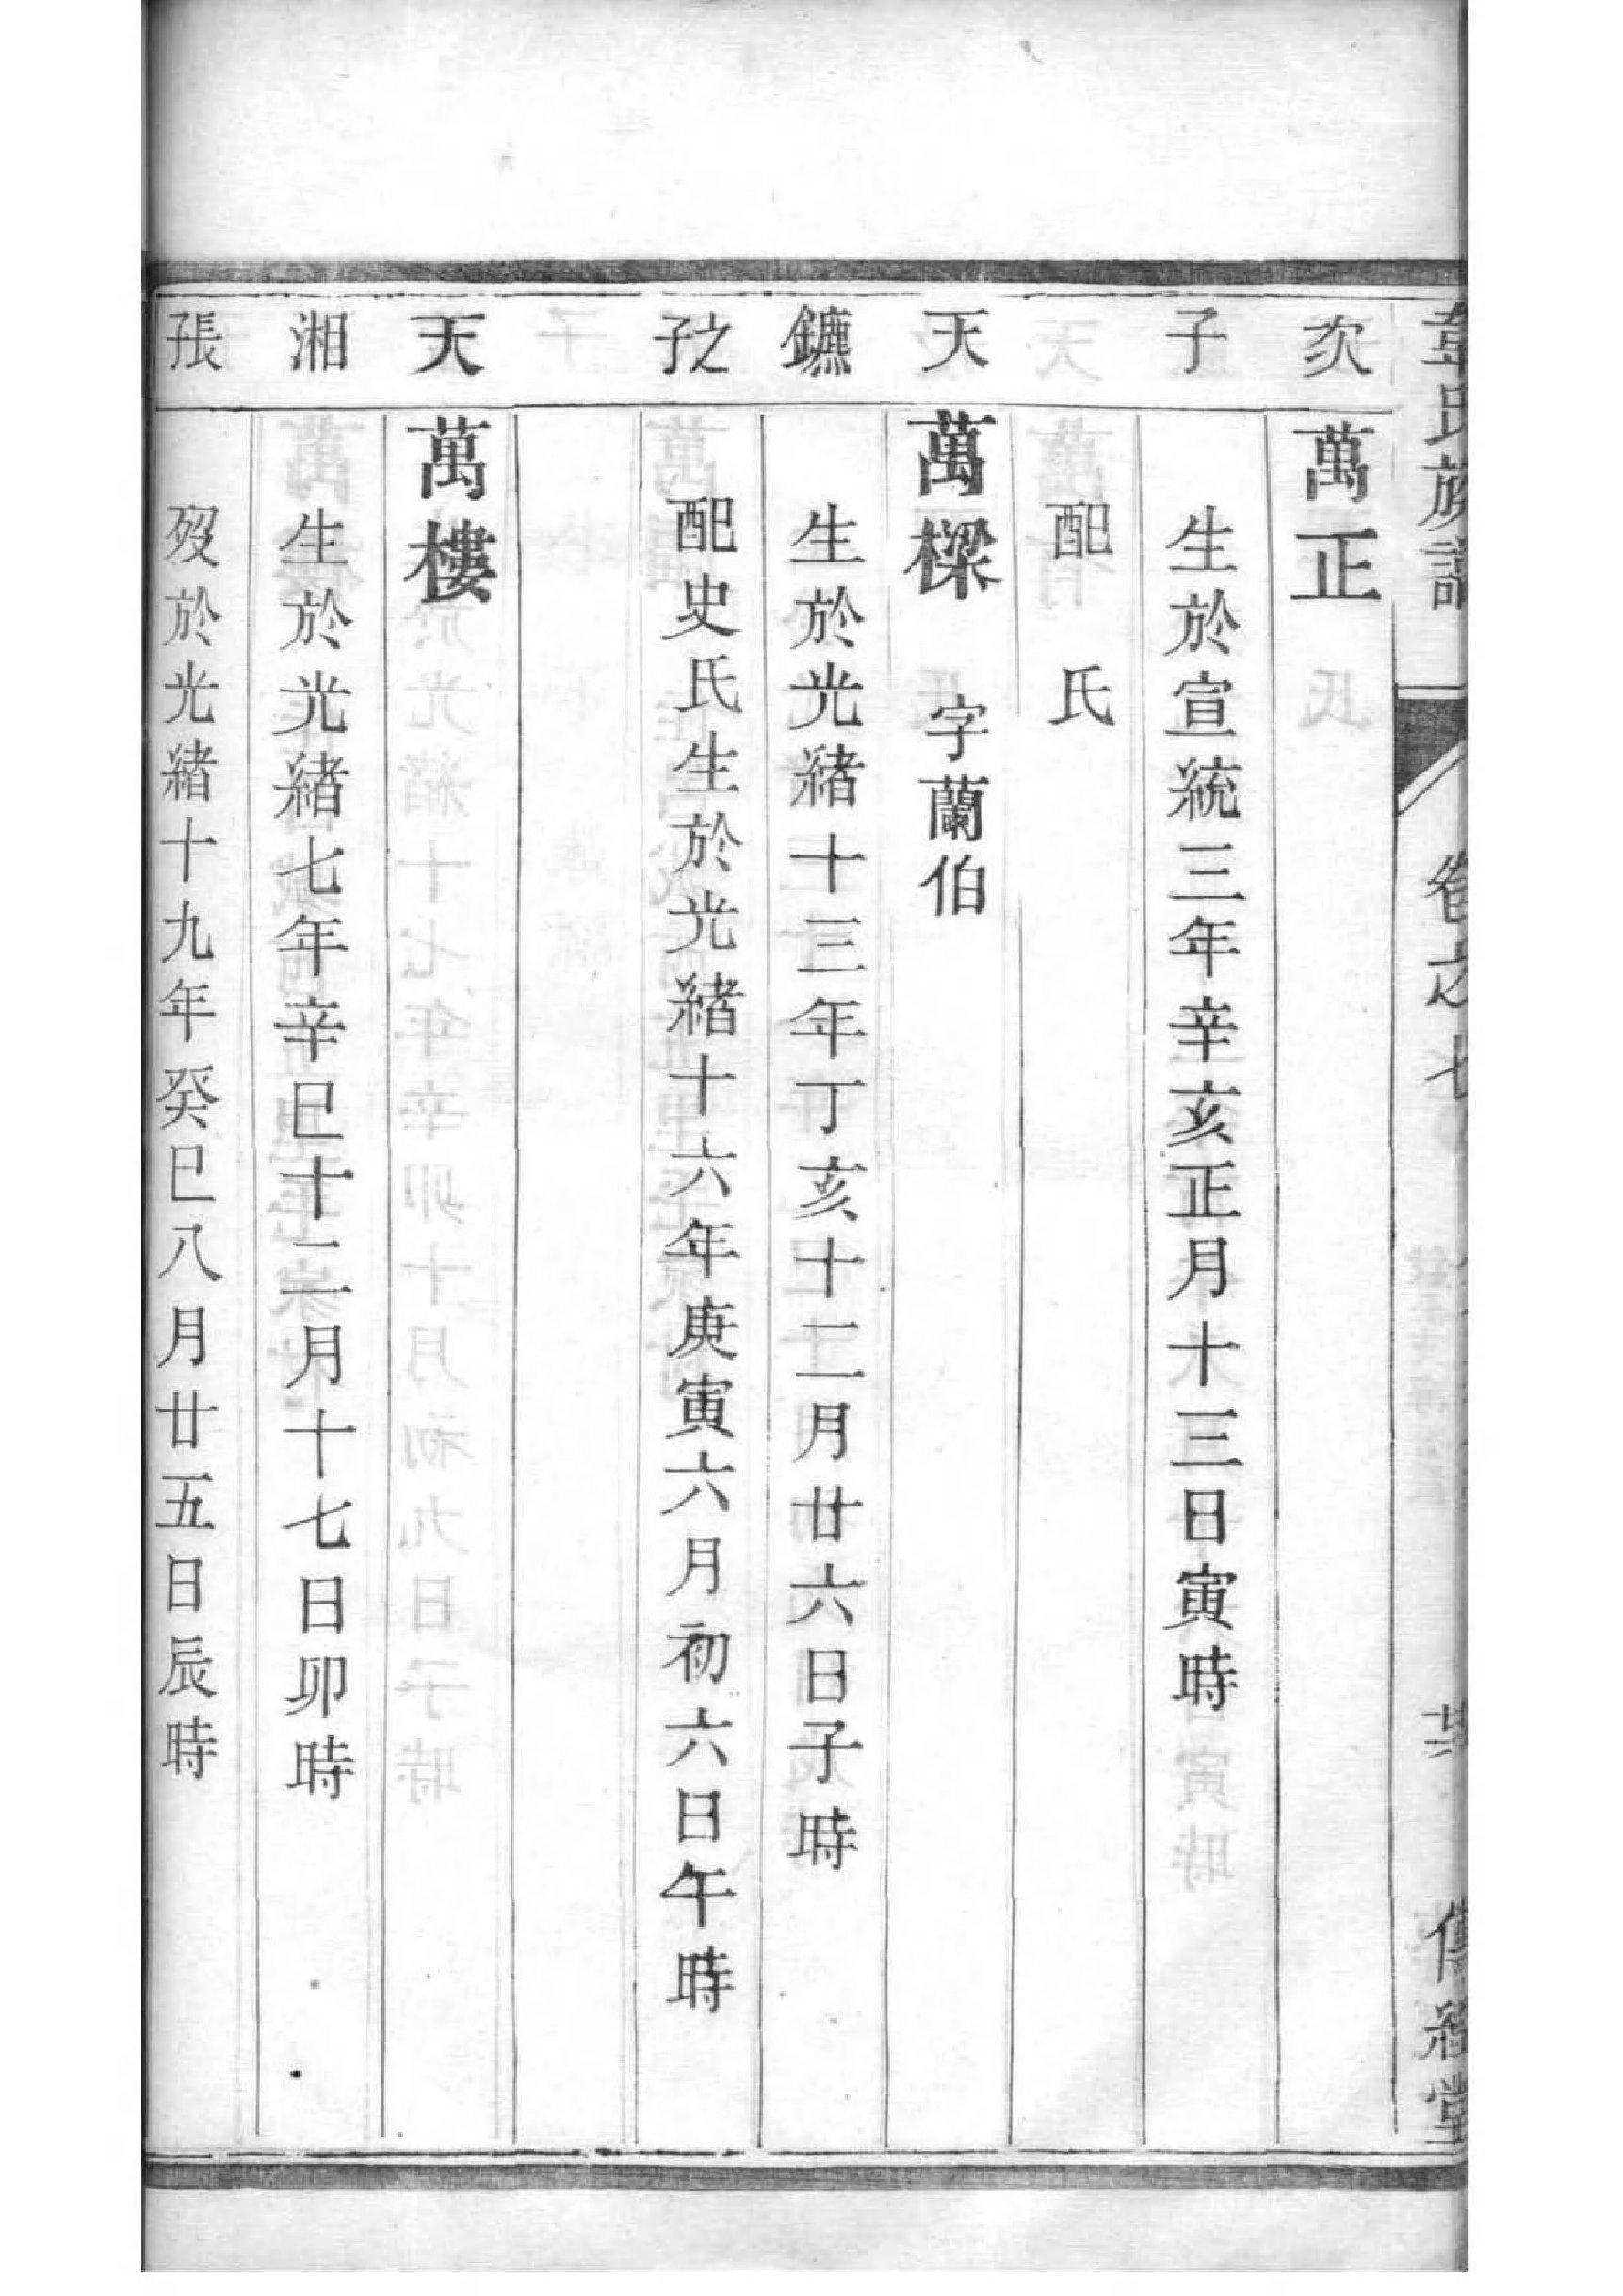 韋氏族譜 卷之七 傳經堂
次 萬正
子 生於宣統三年辛亥正月十三日寅時
配 氏
天 萬樑 字蘭伯
鑣 生於光緒十三年丁亥十二月廿六日子時
之子 配史氏生於光緒十六年庚寅六月初六日午時
天 萬樓
湘 生於光緒七年辛巳十二月十七日卯時
張 歿於光緒十九年癸巳八月廿五日辰時